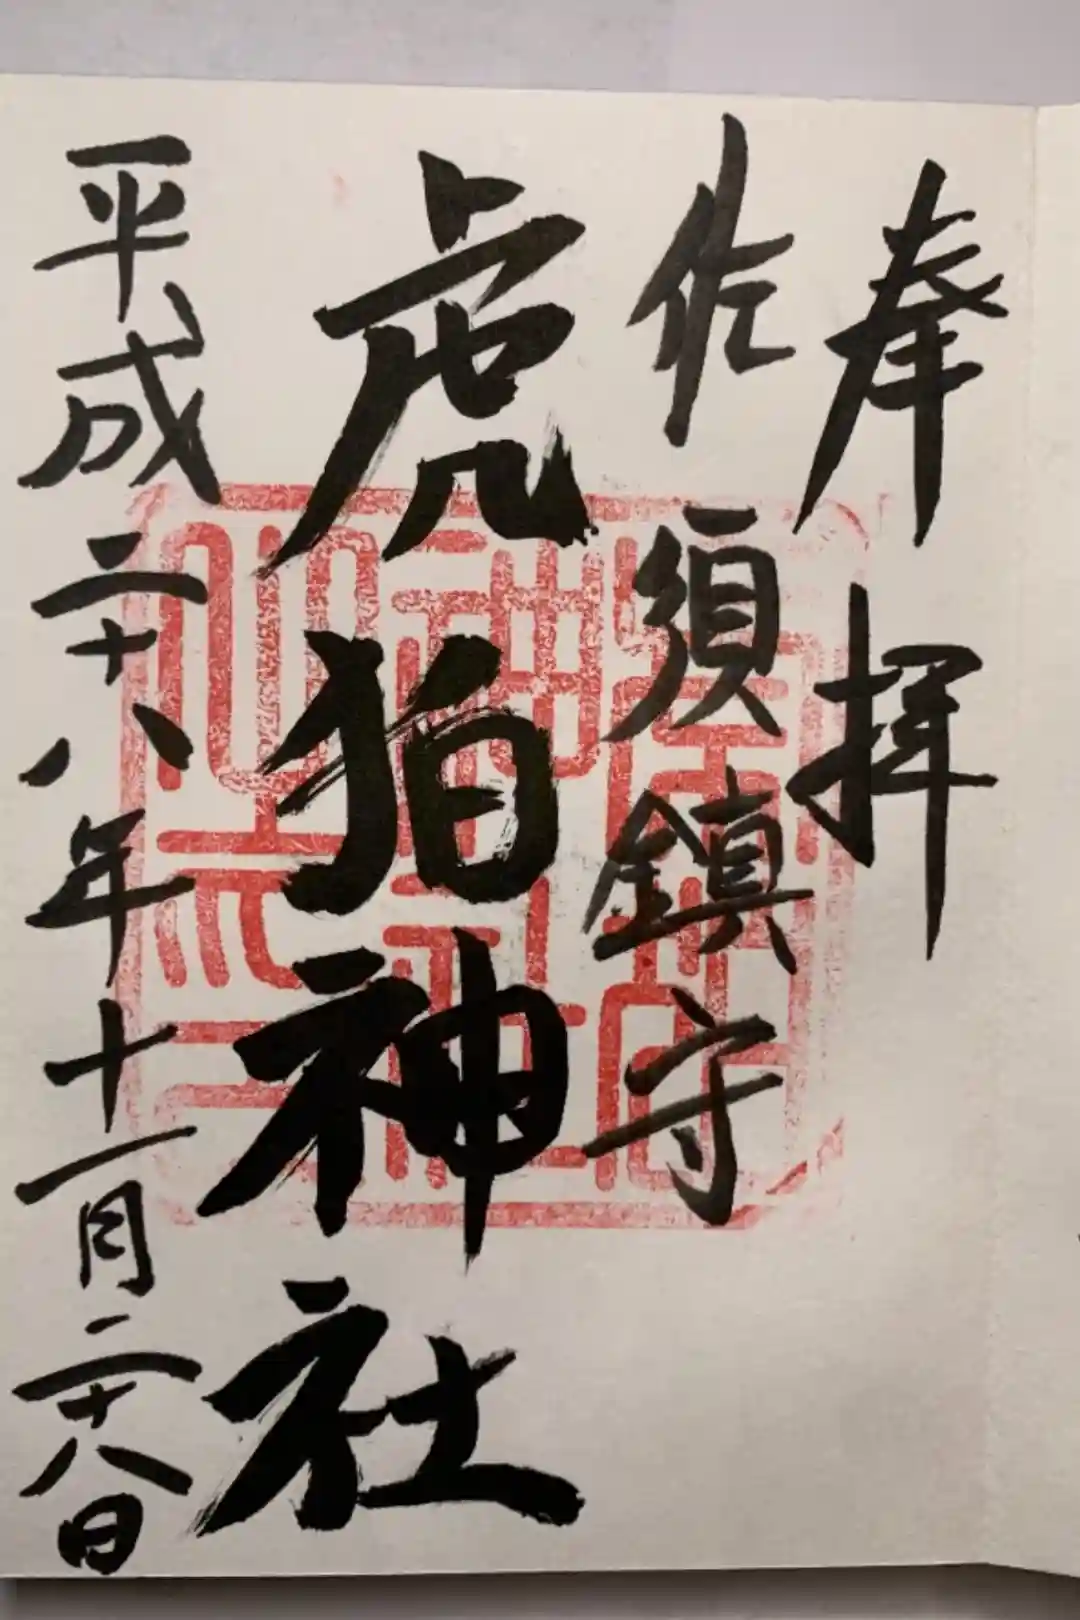 奉拝
佐須鎮守
虎狛神社
平成二十八年十一月二十八日